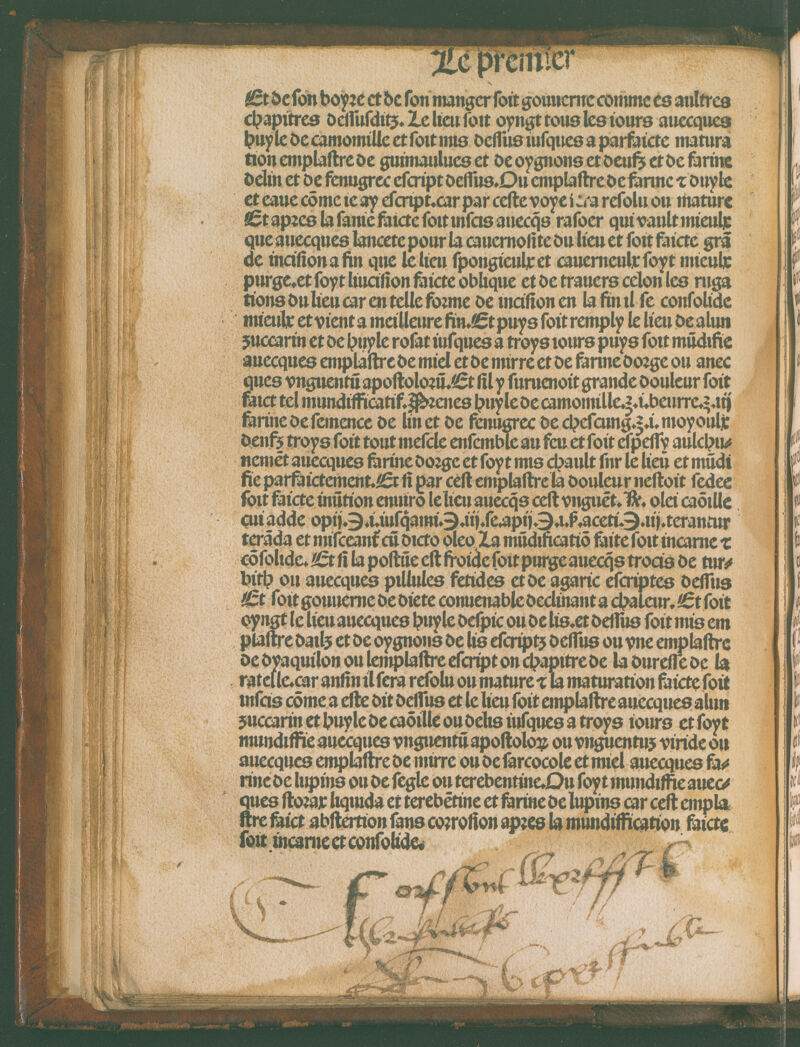 Le premier
Et de ſon boyre et de ſon manger ſoit gouuerne comme es aultres
chapitres deſſuſditz. Le lieu ſoit oyngt tous les iours auecques
huyle de camomille et ſoit mis deſſus iuſques a parfaicte matura
tion emplaſtre de guimaulues et de oygnons et deufz et de farine
delin et de fenugrec eſcript deſſus. Ou emplaſtre de farine ⁊ duyle
et eaue cõme ie ay eſcript. car par ceſte voye ſera reſolu ou mature
Et apres la ſanie faicte ſoit inſcis auecq̃s raſoer qui vault mieulx
que auecques lancete pour la cauernoſite du lieu et ſoit faicte grã
de inciſion a fin que le lieu ſpongieulx et cauerneulx ſoyt mieulx
purge. et ſoyt linciſion faicte oblique et de trauers celon les ruga
tions du lieu car en telle forme de inciſion en la fin il ſe conſolide
mieulx et vient a meilleure fin. Et puys ſoit remply le lieu de alun
zuccarin et de huyle roſat iuſques a troys iours puys ſoit mũdifie
auecques emplaſtre de miel et de mirre et de farine dorge ou auec
ques vnguentũ apoſtolorũ. Et ſil y ſuruenoit grande douleur ſoit
faict tel mundifficatif. Prenes huyle de camomille.ʒ.i.beurre.ʒ.iij
farine de ſemence de lin et de fenugrec de cheſcung.ʒ.i. moyoulx
deufz troys ſoit tout meſcle enſemble au feu et ſoit eſpeſſy aulchu⸗
nemẽt auecques farine dorge et ſoyt mis chault ſur le lieu et mũdi
fie parfaictement. Et ſi par ceſt emplaſtre la douleur neſtoit ſedee
ſoit faicte inũtion enuirõ le lieu auecq̃s ceſt vnguẽt. ℞. olei caõille
cui adde opij.℈.i.iuſq̃ami.℈.iij.ſe.apij.℈.i.ẜ.aceti.℈.iij.terantur
terãda et miſceant᷑ cũ dicto oleo La mũdificatiõ faite ſoit incarne ⁊
cõſolide. Et ſi la poſtũe eſt froide ſoit purge auecq̃s trocis de tur⸗
bith ou auecques pillules fetides et de agaric eſcriptes deſſus
Et ſoit gouuerne de diete conuenable declinant a chaleur. Et ſoit
oyngt le lieu auecques huyle deſpic ou de lis. et deſſus ſoit mis em
plaſtre dailz et de oygnons de lis eſcriptz deſſus ou vne emplaſtre
de dyaquilon ou lemplaſtre eſcript on chapitre de la dureſſe de la
ratelle. car anfin il ſera reſolu ou mature ⁊ la maturation faicte ſoit
inſcis cõme a eſte dit deſſus et le lieu ſoit emplaſtre auecques alun
zuccarin et huyle de caõille ou delis iuſques a troys iours et ſoyt
mundiffie auecques vnguentũ apoſtoloꝝ ou vnguentuz viride ou
auecques emplaſtre de mirre ou de ſarcocole et miel auecques fa⸗
rine de lupins ou de ſegle ou terebentine. Ou ſoyt mundiffie auec⸗
ques ſtorax liquida et terebẽtine et farine de lupins car ceſt empla
ſtre faict abſtertion ſans corroſion apres la mundiffication faicte
ſoit incarne et conſolide.